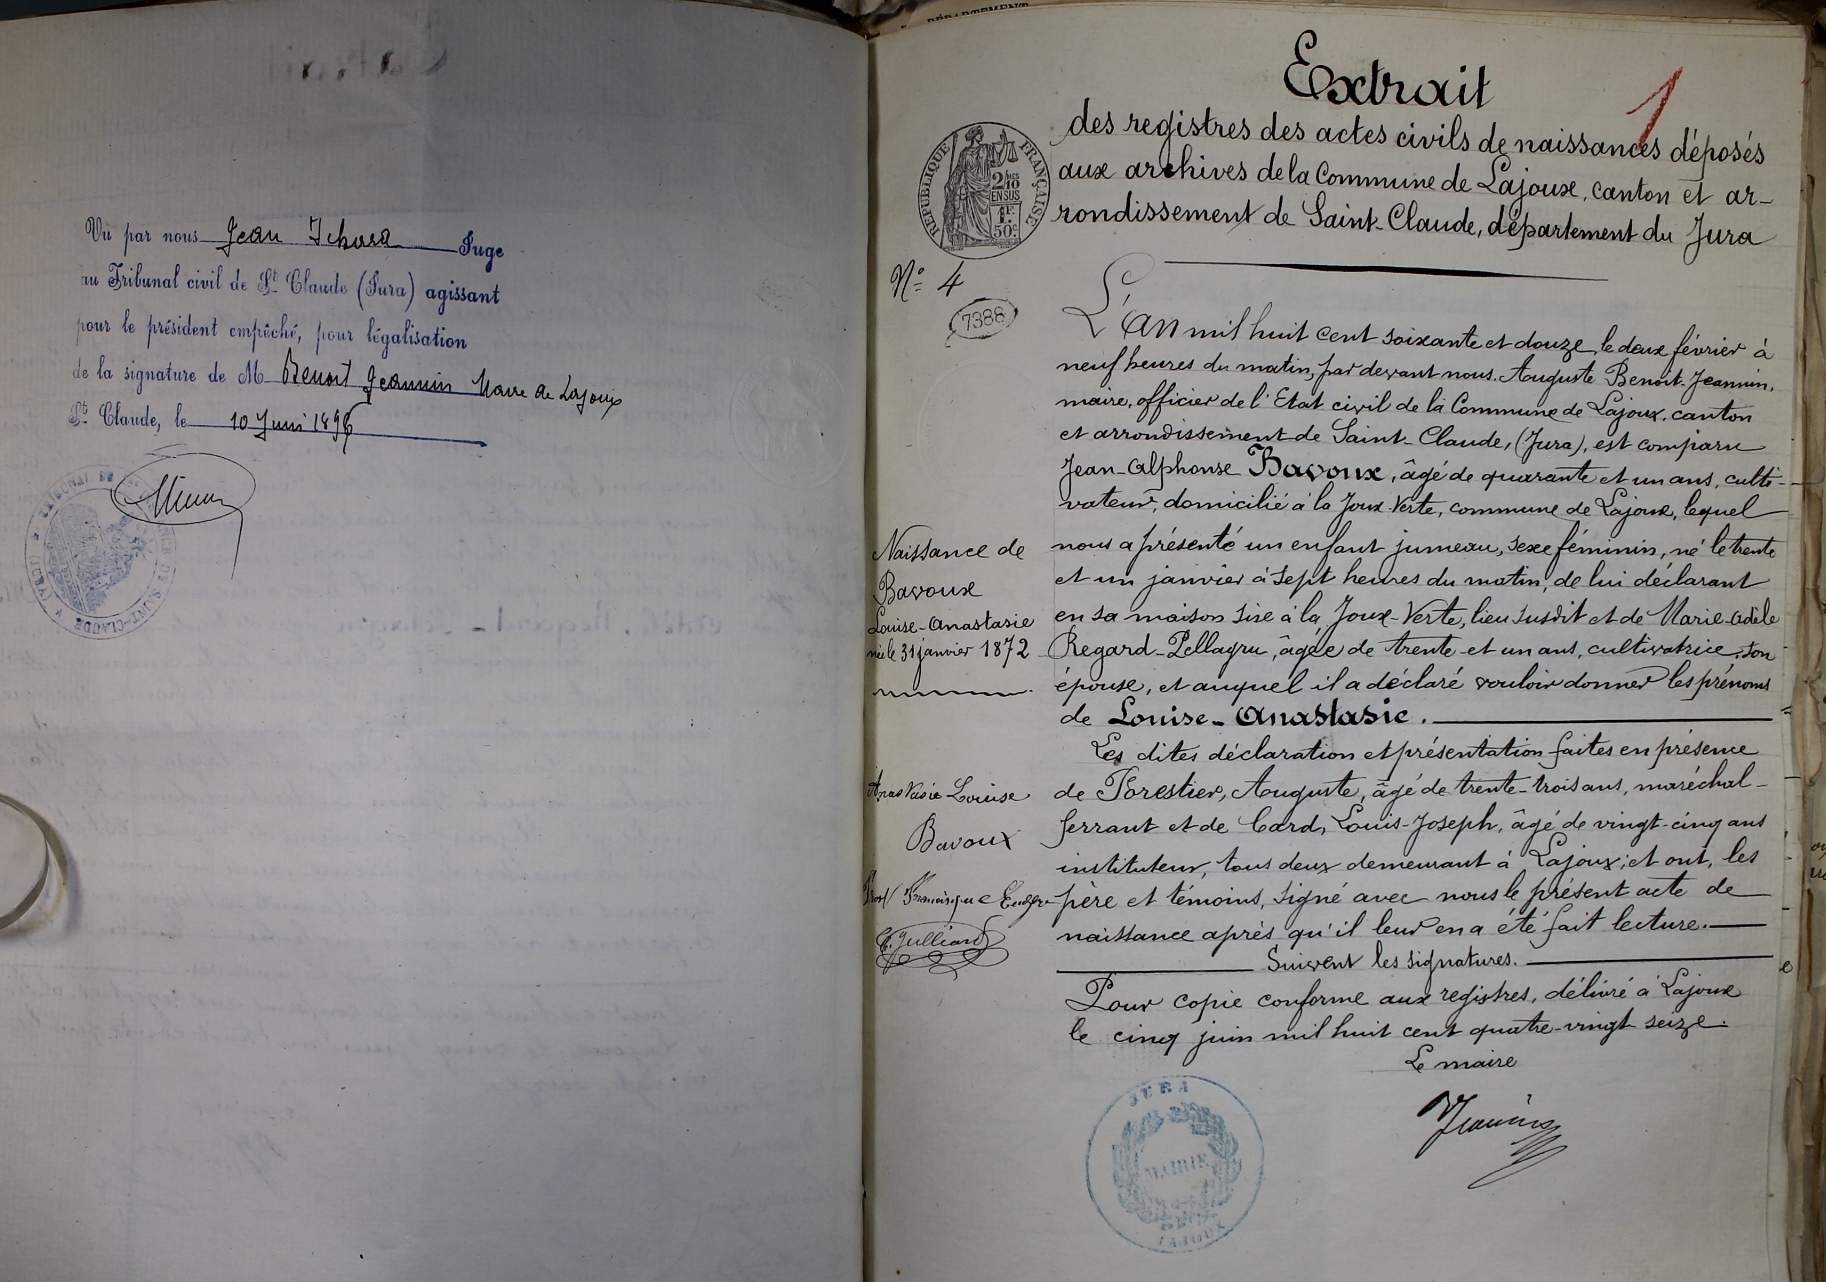 Vu par nous Jean Juge
au Tribunal civil de St Claude (Jura) agissant
pour le président empêché, pour légalisation
de la signature de M Benoit Jeannin Maire de Lajoux
St Claude, le 10 Juin 1896
DÉPARTEMENT
Extrait
1
des registres des actes civils de naissances déposés
aux archives de la Commune de Lajoux, canton et ar-
rondissement de Saint-Claude, département du Jura
RÉPUBLIQUE FRANÇAISE
2/10
EN SUS
50c
N° 4
7388
L'an mil huit cent soixante et douze, le deux février à
neuf heures du matin, par devant nous. Auguste Benoit-Jeannin,
maire, officier de l'Etat civil de la Commune de Lajoux, canton
et arrondissement de Saint-Claude, (Jura), est comparu
Jean-Alphonse Bavoux, âgé de quarante et un ans, culti-
vateur, domicilié à la Joux-Verte, commune de Lajoux, lequel
nous a présenté un enfant jumeau, sexe féminin, né le trente
et un janvier à sept heures du matin, de lui déclarant
en sa maison sise à la Joux-Verte, lieu susdit et de Marie-Adèle
Regard-Pellagru, âgée de trente et un ans, cultivatrice, son
épouse, et auquel il a déclaré vouloir donner les prénoms
de Louise-Anastasie.
Naissance de
Bavoux
Louise-Anastasie
née le 31 janvier 1872
Les dites déclaration et présentation faites en présence
de Forestier, Auguste, âgé de trente-trois ans, maréchal-
ferrant et de Card, Louis-Joseph, âgé de vingt-cinq ans
instituteur, tous deux demeurant à Lajoux; et ont, les
père et témoins, signé avec nous le présent acte de
naissance après qu'il leur en a été fait lecture.
Suivent les signatures.
Anastasie Louise
Bavoux
Julliard
Pour copie conforme aux registres, délivré à Lajoux
le cinq juin mil huit cent quatre-vingt seize.
Le maire
Jeannin
JURA
MAIRIE
DE
LAJOUX